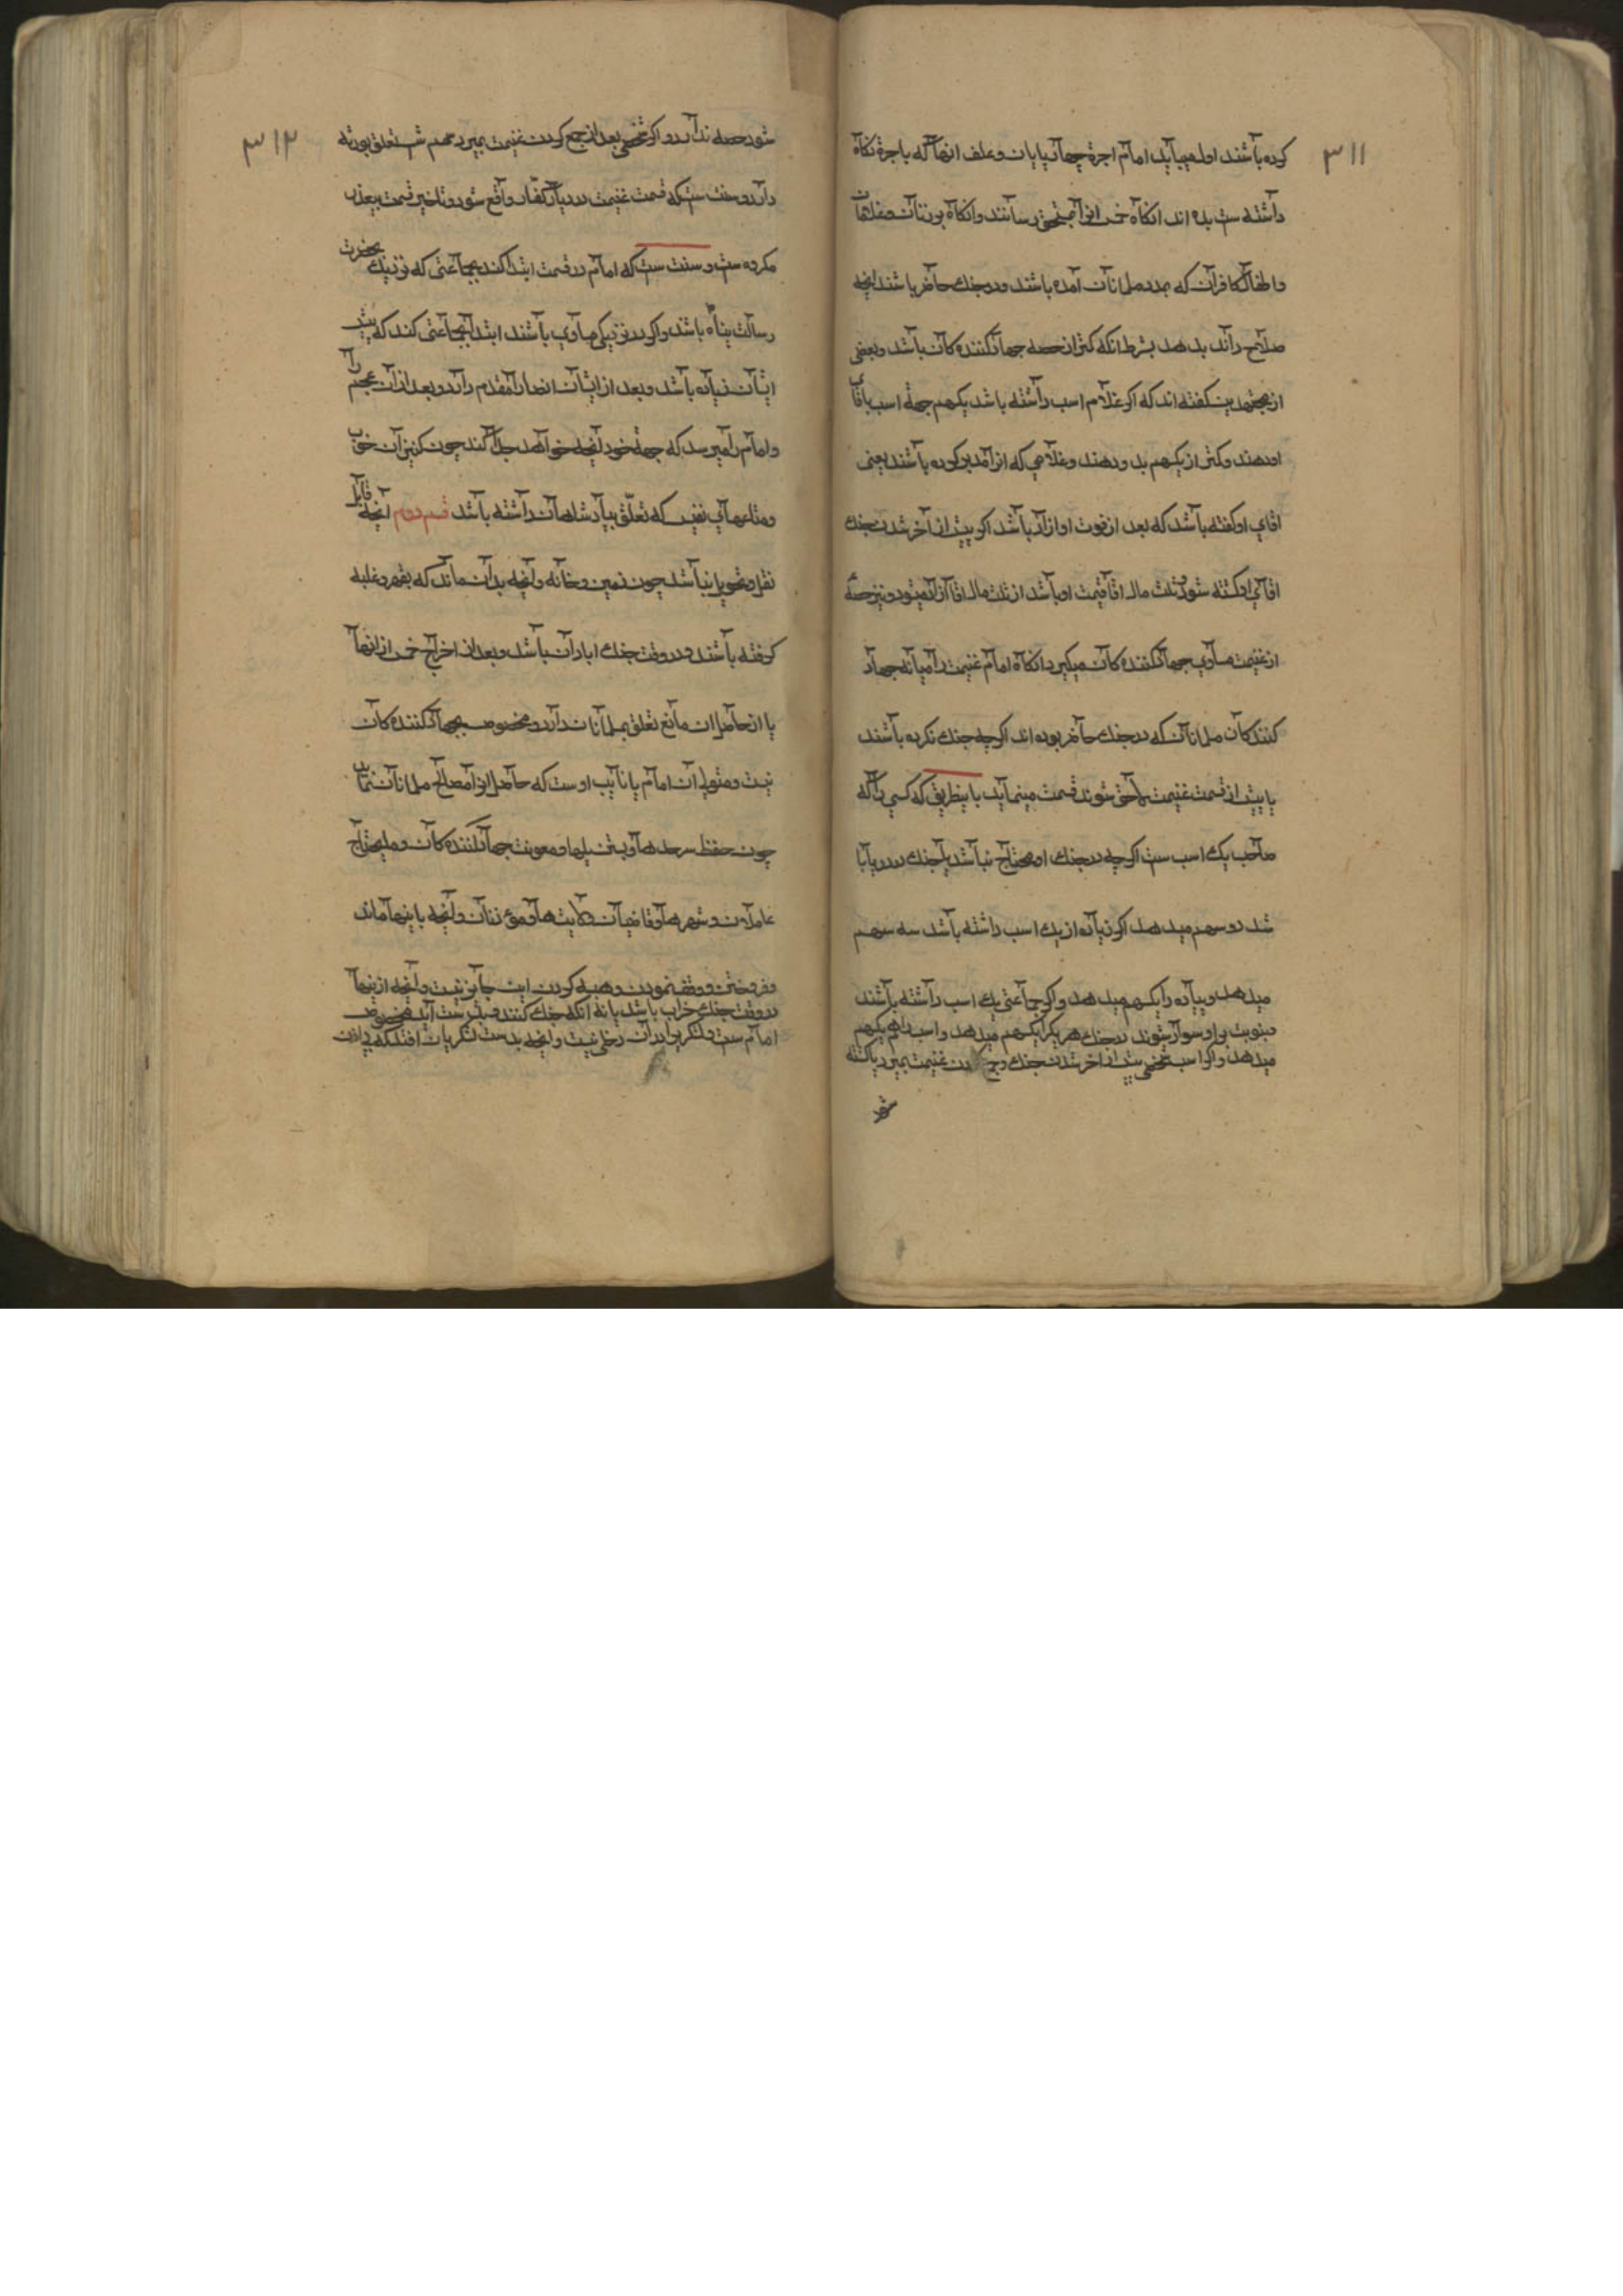 ۳۱۱
کرده باشند اول میباید امام اجرة چهارپایان و علف انها که باجرة نکاه
داشته ست بده اند انکاه خمس انرا بمستحق رسانند و انکاه بزنان و غلامان
و اطفال کافران که بمدد مسلمانان آمده باشند و درجنك حاضر باشند انچه
صلاح داند بدهد بشرط انکه کمتر از حصه جهاد کننده کان باشد و بعضی
از مجتهدین کفته اند که اکر غلام اسب داشته باشد یکسهم جهة اسب باقای
او دهند و کمتر از یکسهم بدو دهند و غلامی که انرا مدبر کرده باشند یعنی
اقای او کفته باشد که بعد از فوت او ازاد باشد اکر پیش از آخر شدن جنك
اقای او کشته شود و ثلث مال اقا قیمت او باشد از ثلث مال اقا آزاد میشود و نیز حصهٔ
از غنیمت مساوی جهاد کننده کان میکیرد انکاه امام غنیمت را میانه جهاد
کننده کان مسلمانان که درجنك حاضر بوده اند اکرچه جنك نکرده باشند
یا پیش از قسمت غنیمت ملحق شوند قسمت مینماید باینطریق که کسی را که
صاحب یك اسب ست اکرچه درجنك او محتاج نباشد یا جنك در دریا با
شد دو سهم میدهد اکر زیاده از یك اسب داشته باشد سه سهم
میدهد و پیاده را یکسهم میدهد و اکر جماعتی یك اسب داشته باشند
و بنوبت بر او سوار شوند درجنك هر یك را یکسهم میدهد و اسب را هم یکسهم
میدهد و اکر اسب شخصی پیش از اخر شدن جنك و جمع کردن غنیمت بمیرد یا کشته
شود
۳۱۲
شود حصه ندارد و اکر شخصی بعد از جمع کردن غنیمت بمیرد سهمش تعلق بورثه
دارد و سنت ست که قسمت غنیمت در دیار کفار واقع شود و تاخیر قسمت بیعذر
مکروه ست و سنت ست که امام در قسمت ابتدا کند بجماعتی که نزدیك بحضرت
رسالت پناه باشد و اکر در نزدیکی مساوی باشند ابتدا بجماعتی کند که سن
ایشان زیاده باشد و بعد از ایشان انصار را مقدم دارد و بعد از آن عجم را
و امام را میرسد که جهة خود انچه خواهد جدا کند چون کنیزان خوب
و متاعهای نفیس که تعلّق بپادشاهان داشته باشد قسم دوم آنچه قابل
نقل و تحویل نباشد چون زمین و خانه و آنچه بدان ماند که بقهر و غلبه
کرفته باشند و در وقت جنك ابادان باشد و بعد از اخراج خمس از انها
یا از حاصل ان مانع تعلق بمسلمانان دارد و مخصوص بجهاد کننده کان
نیست و متولی آن امام یا نایب اوست که حاصل انرا بمصالح مسلمانان نماید
چون حفظ سرحدها و بستن پلها و معونت جهاد کننده کان و مایحتاج
عاملان و شهرها و قاضیان ولایت ها و مؤذنان و آنچه باینها ماند
و فروختن و وقف نمودن و هبه کردن این جایز نیست و آنچه از اینها
در وقت جنك خراب باشد یا نه انکه جنك کنند و بدست آید مخصوص
امام ست و لشکریرا در ان دخلی نیست و انچه بدست لشکریان افتد که بی اذن